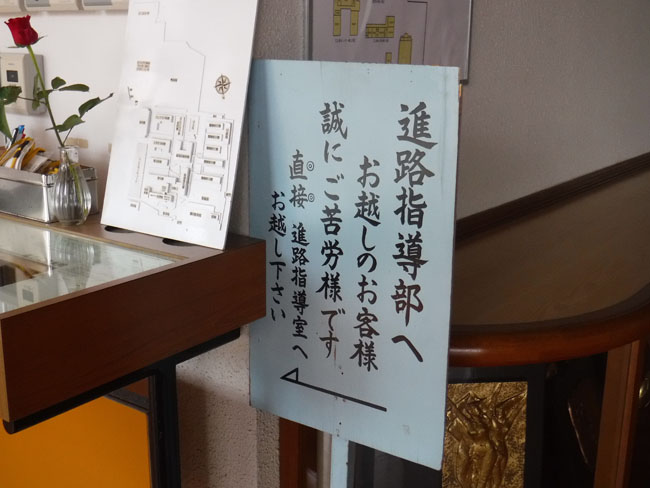 進路指導部へ
お越しのお客様
誠にご苦労様です
直接 進路指導室へ
お越し下さい